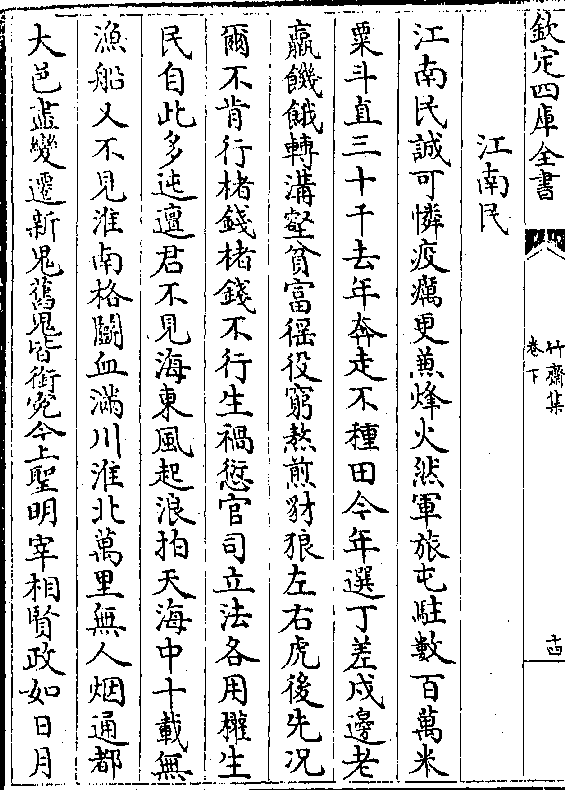 欽定四庫全書
竹齋集
卷下
十四
江南民
江南民誠可憐疫癘更兼烽火然軍旅屯駐數百萬米
粟斗直三十千去年奔走不種田今年選丁差戍邊老
羸饑餓轉溝壑貧富徭役窮熬煎豺狼左右虎後先況
爾不肯行楮錢楮錢不行生禍愆官司立法各用權生
民自此多迍邅君不見海東風起浪拍天海中十載無
漁船又不見淮南格鬭血滿川淮北萬里無人烟通都
大邑盡變遷新鬼舊鬼皆銜冤今上聖明宰相賢政如日月